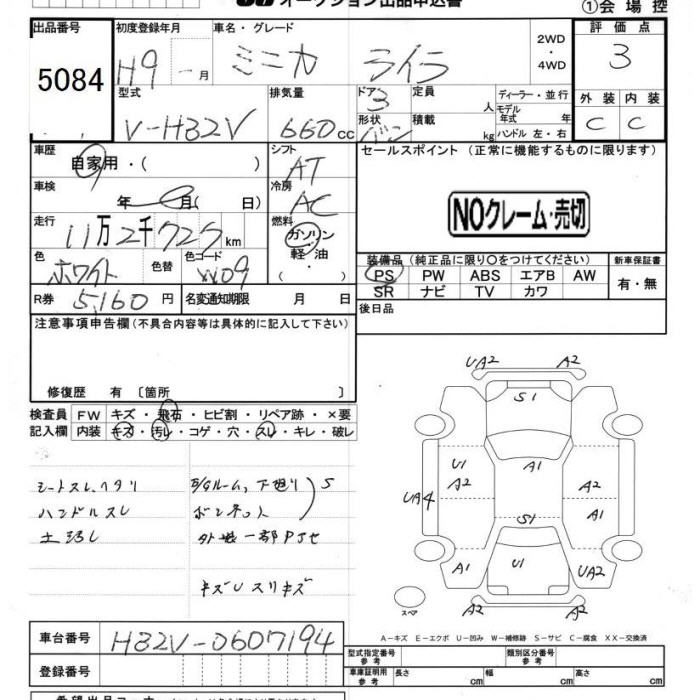 オークション出品申込書
①会場控
出品番号 初度登録年月 車名・グレード 2WD ・ 4WD 評価点
5084 H9 - 月 ミニカ ライラ 3
型式 排気量 ドア 定員 ディーラー・並行 外装 内装
V-H32V 660 cc 3 人 モデル年式 年 C C
形状 バン 積載 kg ハンドル 左・右
車歴 自家用・( ) シフト AT セールスポイント (正常に機能するものに限ります)
車検 年 月( 日) 冷房 AC
NOクレーム・売切
走行 11万2千725km 燃料 ガソリン・軽油・
色 ホワイト 色替 色コード W09
装備品(純正品に限り○をつけてください) 新車保証書
PS PW ABS エアB AW 有・無
SR ナビ TV カワ
R券 5,160 円 名変通知期限 月 日
後日品
注意事項申告欄(不具合内容等は具体的に記入して下さい)
修復歴 有 〔箇所 〕
検査員 FW キズ・飛石・ヒビ割・リペア跡・×要
記入欄 内装 キズ・汚レ・コゲ・穴・スレ・キレ・破レ
シートスレ、ヘタリ E/Gルーム、下廻り S
ハンドルスレ ボンネット
外装一部
キズUスリキズ
UA2 A2
S1
U1 A1 A2
A2
UA4 A1
S1
A1 U1 UA2 A2
スペア
A-キズ E-エクボ U-凹み W-補修跡 S-サビ C-腐食 XX-交換済
車台番号 H32V-0607194
型式指定番号 参考 類別区分番号 参考
登録番号 車庫証明用 参考 長さ cm 幅 cm 高さ cm